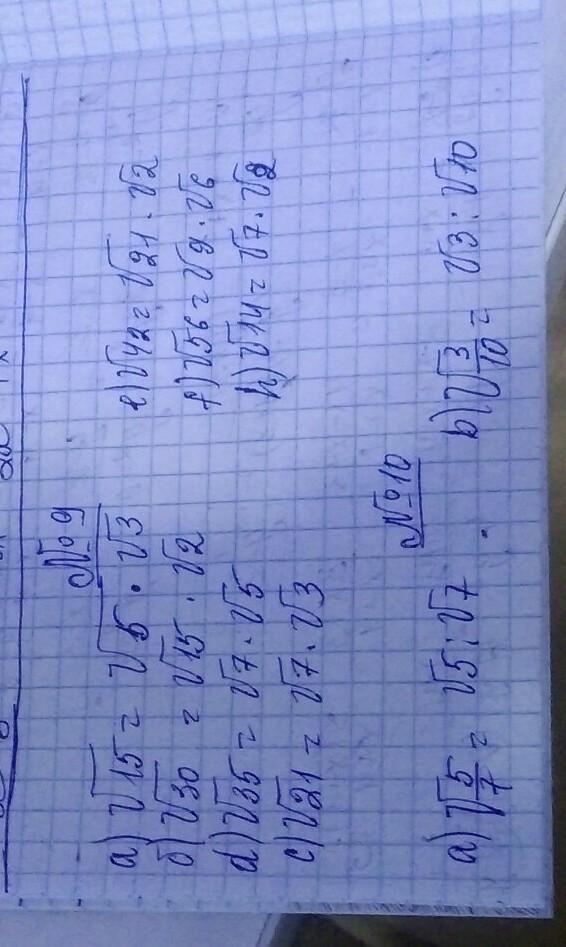 №9
a) √15 = √5 · √3
б) √30 = √15 · √2
d) √35 = √7 · √5
c) √21 = √7 · √3
e) √42 = √21 · √2
f) √56 = √9 · √6
h) √14 = √7 · √2
№10
a) √5/7 = √5 : √7
b) √3/10 = √3 : √10